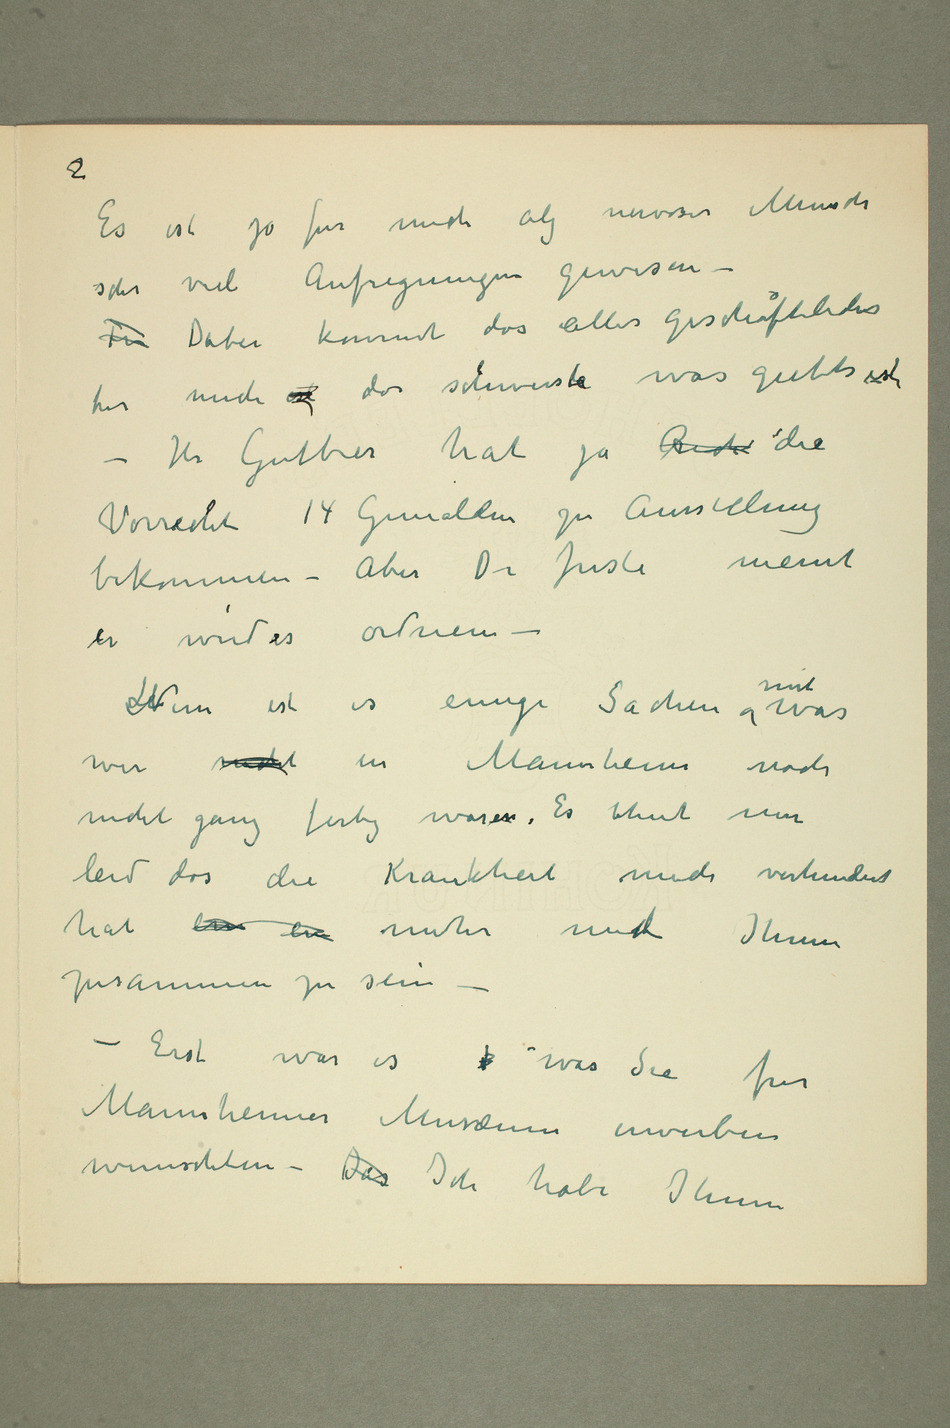 2
Es ist ja fur mich als nervoser Mensch
sehr viel Aufregningen gewesen –
Dabei kommt das alles geschäftliches
fur mich das schwerste was giebts ist
– Hr Gutbier hat ja die
Vorrecht 14 Gemalden zu Ausstellung
bekommen – Aber Dr
meint
er wird es ordnen –
Nun ist es einige Sachen mit was
wir nicht in Mannheim noch
nicht ganz fertig waren. Es thut mir
leid das die Krankheit mich verhindert
hat mehr mit Ihnen
zusammen zu sein –
– Erst war es was Sie fur
Mannheimer Musæum erwerben
wunschten – Das Ich habe Ihnen